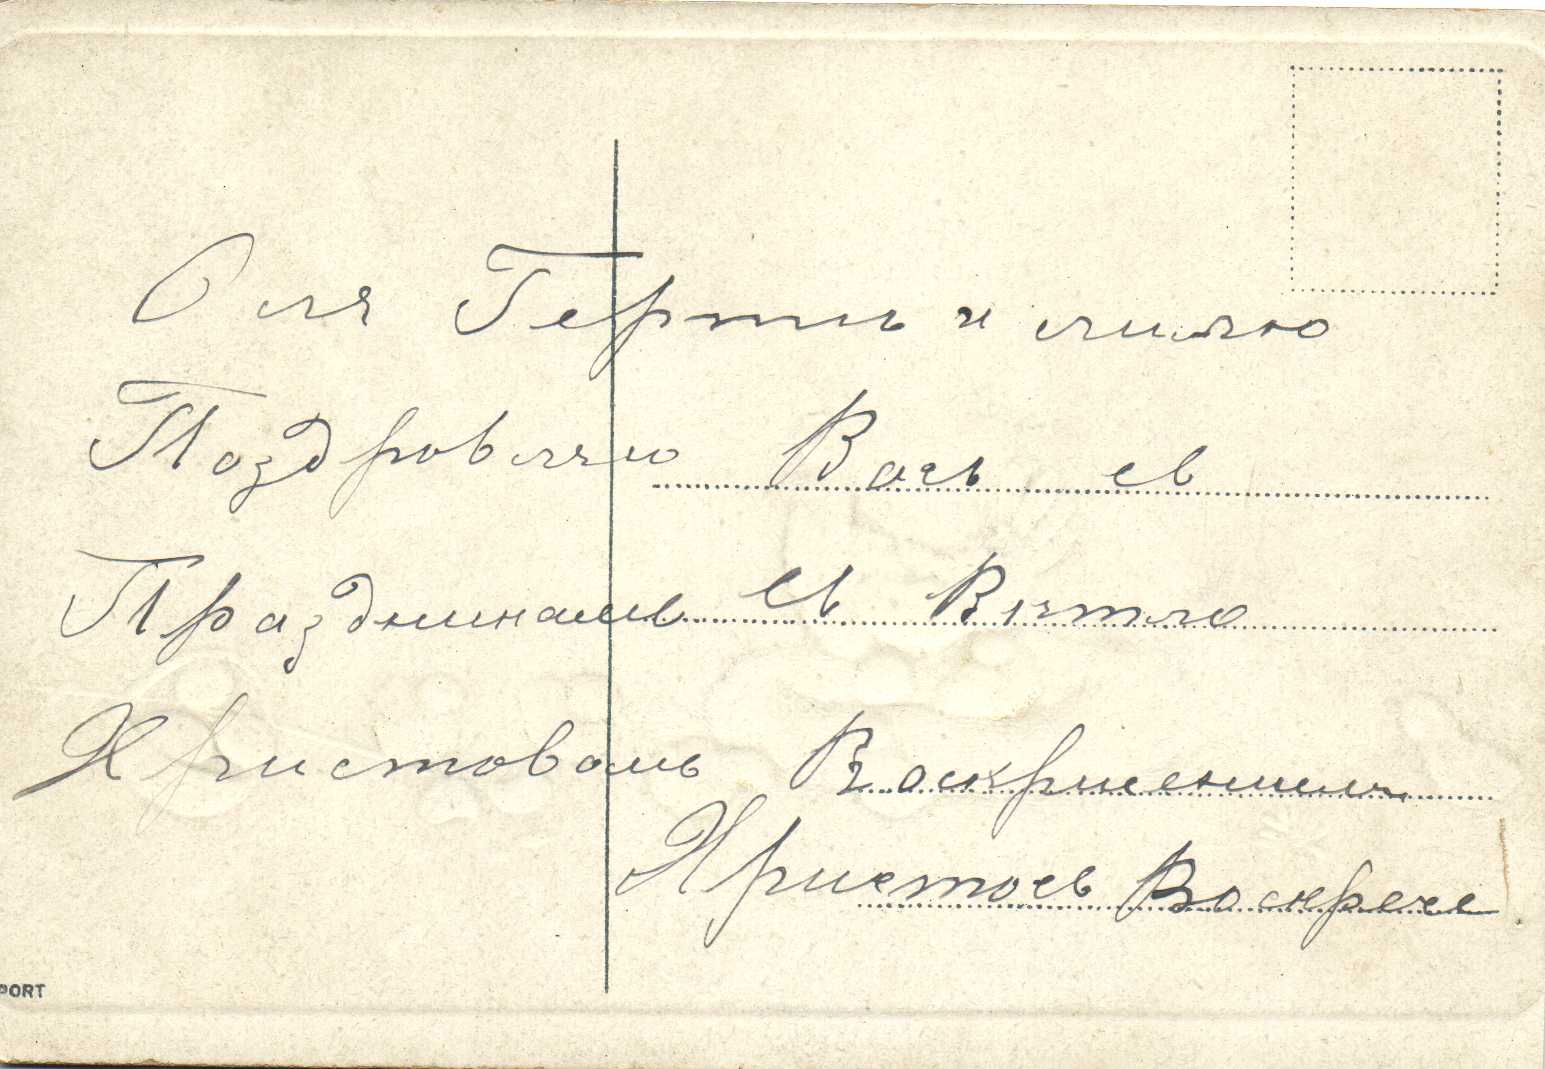 Оля Герть и лилю
Поздровляю Вась съ
Праздникамь Съ Вятло
Христовамь Васкрисениемъ
Христосъ Васкресе
PORT